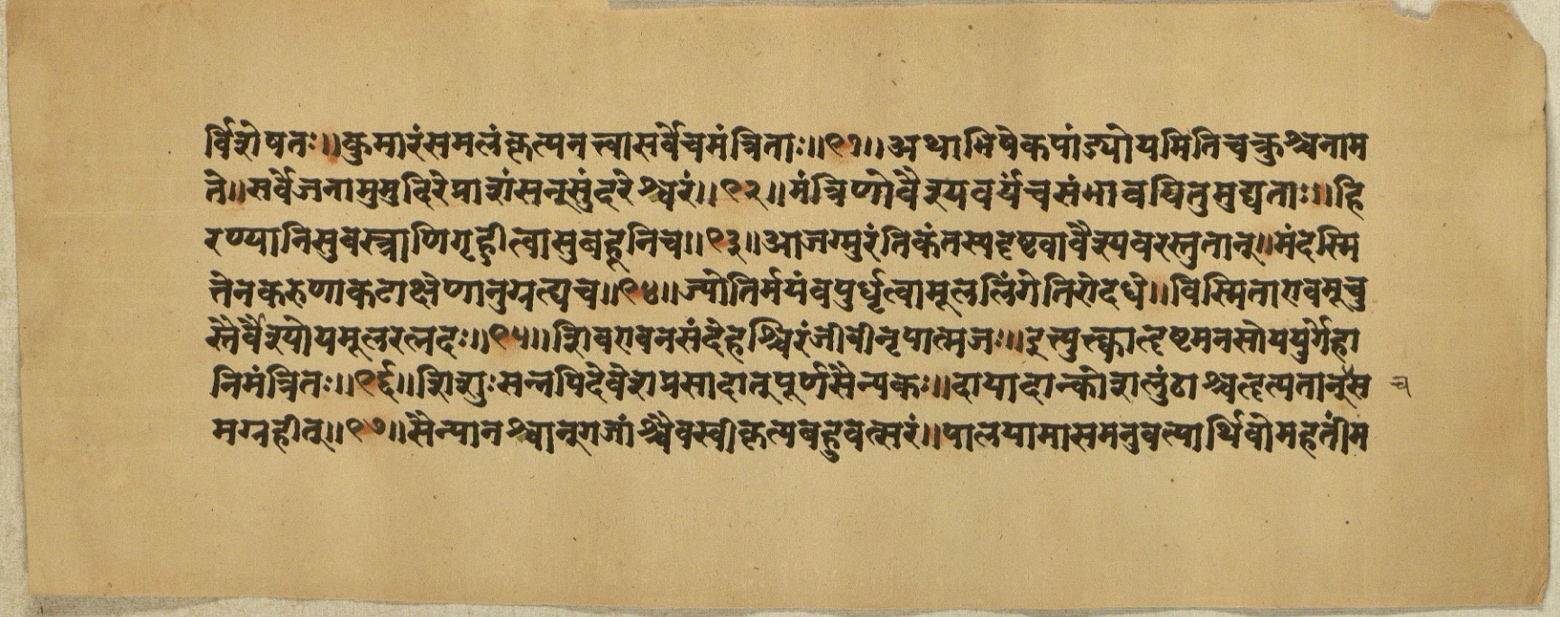 र्विशेषतः॥कुमारंसमलंकृत्यनत्त्वासर्वेचमंत्रिताः॥९१॥अथाभिषेकपांड्योयमितिचक्रुश्चनाम
ते॥सर्वेजनामुमुदिरेपाशंसनूसुंदरेश्वरं॥९२॥मंत्रिणोवैश्यवर्यंचसंभावयितुमुद्यताः॥हि
रण्यानिसुवस्त्राणिगृहीत्वासुबहूनिच॥९३॥आजग्मुरंतिकंतस्यदृष्टवावैश्यवरस्तुतानू॥मंदस्मि
तेनकरुणाकटाक्षेणानुगृत्यच॥९४॥ज्योतिर्मयंवपुर्धृत्वामूललिंगेतिरोदधे॥विस्मितारावमूचु
स्तैर्वैश्योयमूलरत्नदः॥९५॥शिवरावनसंदेहश्चिरंजीवीनृपात्मजः॥इत्युत्क्वातृष्टमनसोययुर्गेहा
निमंत्रितः॥९६॥शिशुःसन्नपिदेवेशप्रसादातूपूर्णसैन्यकः॥दायादान्कोशलुंठाश्चतृत्यतानूस च
मग्रहीतू॥९७॥सैन्यानश्वानूगजांश्चैवस्वीकृत्यबहुवत्सरं॥पालयामासमनुवत्पार्थिवोमहतींम